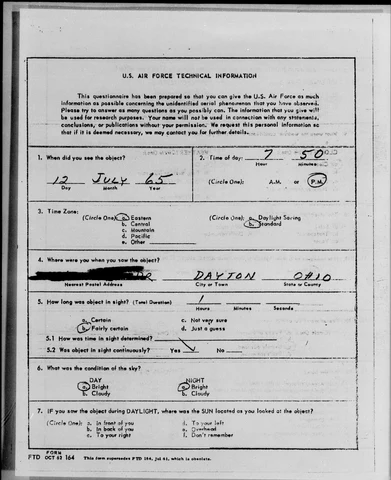 U.S. AIR FORCE TECHNICAL INFORMATION
This questionnaire has been prepared so that you can give the U.S. Air Force as much
information as possible concerning the unidentified aerial phenomenon that you have observed.
Please try to answer as many questions as you possibly can. The information that you give will
be used for research purposes. Your name will not be used in connection with any statements,
conclusions, or publications without your permission. We request this personal information so
that if it is deemed necessary, we may contact you for further details.
1. When did you see the object?
12 JULY 65
Day Month Year
2. Time of day: 7 50
Hour Minutes
(Circle One): A.M. or P.M.
3. Time Zone:
(Circle One): a. Eastern
b. Central
c. Mountain
d. Pacific
e. Other
(Circle One): a. Daylight Saving
b. Standard
4. Where were you when you saw the object?
DR DAYTON OHIO
Nearest Postal Address City or Town State or County
5. How long was object in sight? (Total Duration) 1
Hours Minutes Seconds
a. Certain c. Not very sure
b. Fairly certain d. Just a guess
5.1 How was time in sight determined?
5.2 Was object in sight continuously? Yes ✓ No
6. What was the condition of the sky?
DAY NIGHT
a. Bright a. Bright
b. Cloudy b. Cloudy
7. IF you saw the object during DAYLIGHT, where was the SUN located as you looked at the object?
(Circle One): a. In front of you d. To your left
b. In back of you e. Overhead
c. To your right f. Don't remember
FORM
FTD OCT 62 164 This form supersedes FTD 164, Jul 61, which is obsolete.